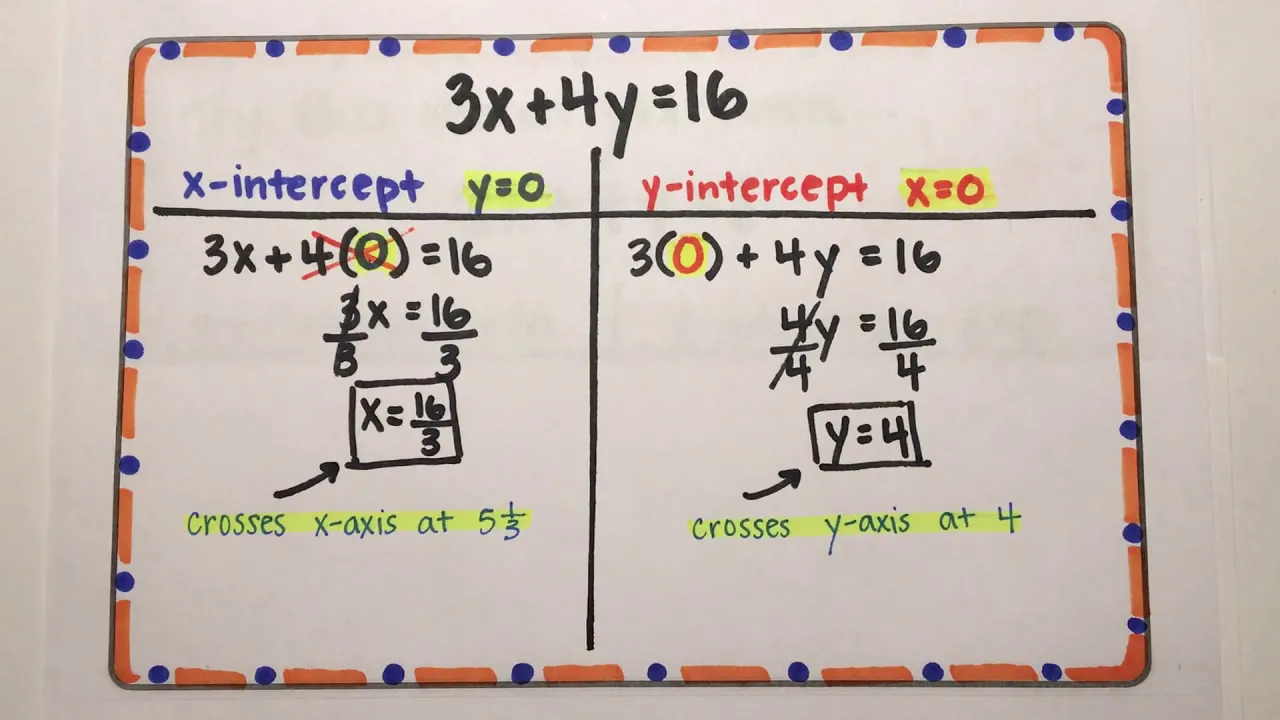 3x+4y=16
x-intercept y=0
3x+4(0)=16
3x = 16
3 3
x=16/3
crosses x-axis at 5 1/3
y-intercept x=0
3(0) + 4y = 16
4y = 16
4 4
y=4
crosses y-axis at 4